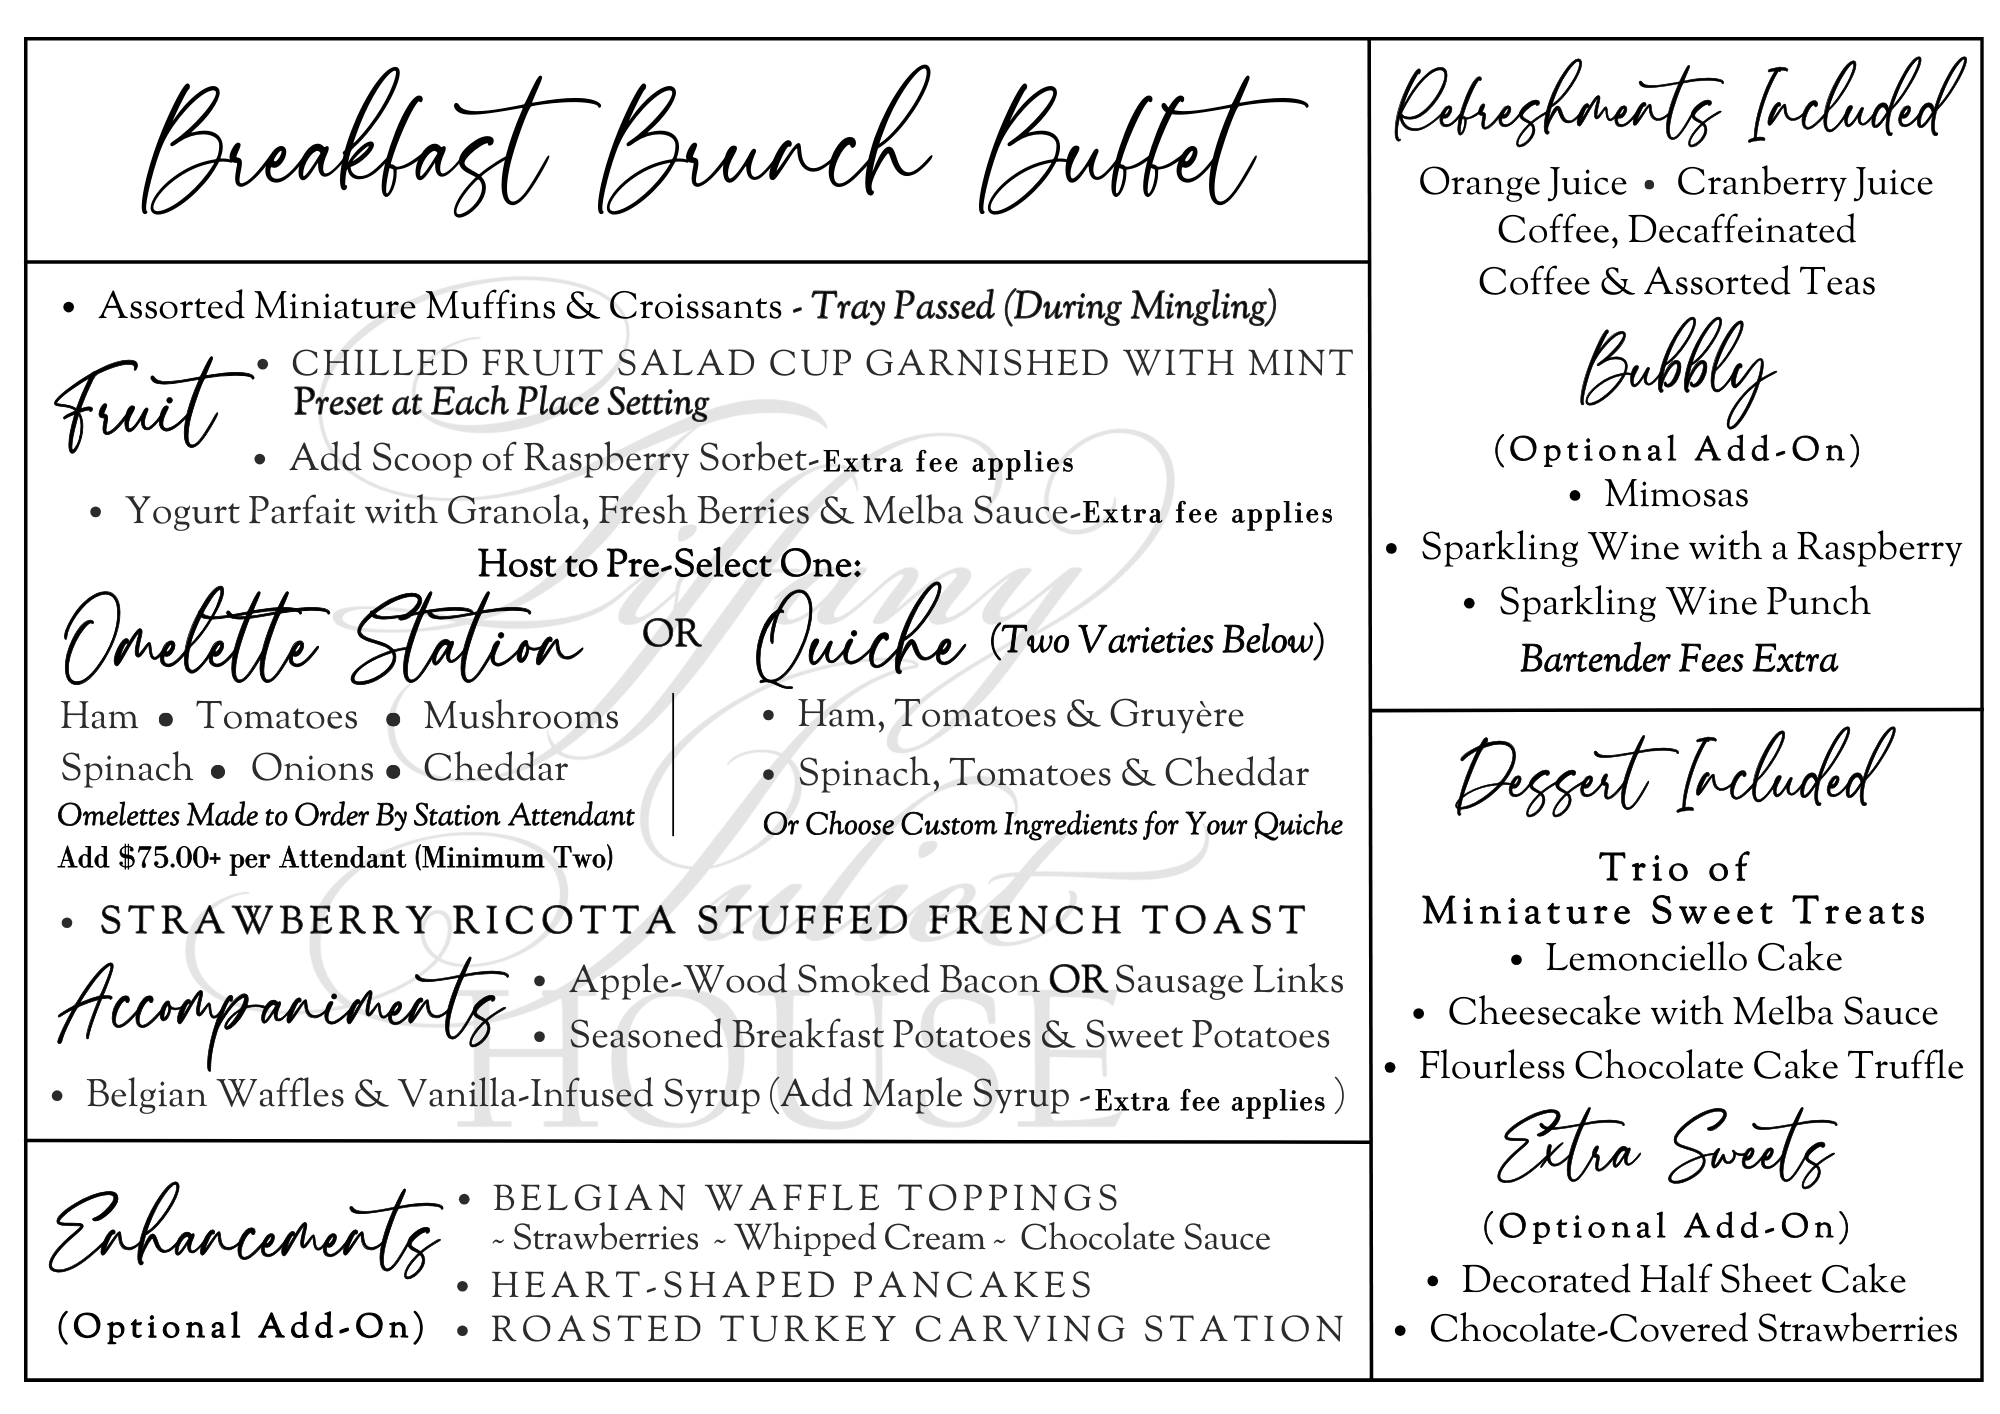 Breakfast Brunch Buffet
• Assorted Miniature Muffins & Croissants - Tray Passed (During Mingling)
Fruit
• CHILLED FRUIT SALAD CUP GARNISHED WITH MINT
Preset at Each Place Setting
• Add Scoop of Raspberry Sorbet-Extra fee applies
• Yogurt Parfait with Granola, Fresh Berries & Melba Sauce-Extra fee applies
Host to Pre-Select One:
Omelette Station OR Quiche (Two Varieties Below)
Ham • Tomatoes • Mushrooms
Spinach • Onions • Cheddar
Omelettes Made to Order By Station Attendant
Add $75.00+ per Attendant (Minimum Two)
• Ham, Tomatoes & Gruyère
• Spinach, Tomatoes & Cheddar
Or Choose Custom Ingredients for Your Quiche
• STRAWBERRY RICOTTA STUFFED FRENCH TOAST
Accompaniments
• Apple-Wood Smoked Bacon OR Sausage Links
• Seasoned Breakfast Potatoes & Sweet Potatoes
• Belgian Waffles & Vanilla-Infused Syrup (Add Maple Syrup -Extra fee applies )
Tiffany
Juliet
HOUSE
Enhancements
(Optional Add-On)
• BELGIAN WAFFLE TOPPINGS
~ Strawberries ~ Whipped Cream ~ Chocolate Sauce
• HEART-SHAPED PANCAKES
• ROASTED TURKEY CARVING STATION
Refreshments Included
Orange Juice • Cranberry Juice
Coffee, Decaffeinated
Coffee & Assorted Teas
Bubbly
(Optional Add-On)
• Mimosas
• Sparkling Wine with a Raspberry
• Sparkling Wine Punch
Bartender Fees Extra
Dessert Included
Trio of
Miniature Sweet Treats
• Lemonciello Cake
• Cheesecake with Melba Sauce
• Flourless Chocolate Cake Truffle
Extra Sweets
(Optional Add-On)
• Decorated Half Sheet Cake
• Chocolate-Covered Strawberries